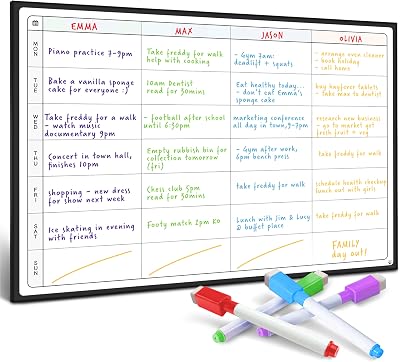 EMMA MAX JASON OLIVIA
MON
Piano practice 7-9pm
Take freddy for walk
help with cooking
- Gym 7am:
deadlift + squats
- arrange oven cleaner
- book holiday
- call home
TUE
Bake a vanilla sponge
cake for everyone :)
10am Dentist
read for 30mins
Eat healthy today...
- don't eat Emma's
sponge cake
buy hayfever tablets
- take max to dentist
WED
Take freddy for a walk
- watch music
documentary 9pm
- football after school
until 6:30pm
marketing conference
all day in town, 9-7pm
research new business
- us to market get
fresh fruit + veg
THU
Concert in town hall,
finishes 10pm
Empty rubbish bin for
collection tomorrow
(fri)
- Gym after work,
6pm bench press
take freddy for walk
FRI
shopping - new dress
for show next week
Chess club 5pm
read for 30mins
take freddy for walk
schedule health checkup
lunch out with girls
SAT
Ice skating in evening
with friends
Footy match 2pm KO
Lunch with Jim & Lucy
@ buffet place
take freddy for walk
SUN
FAMILY
day out!